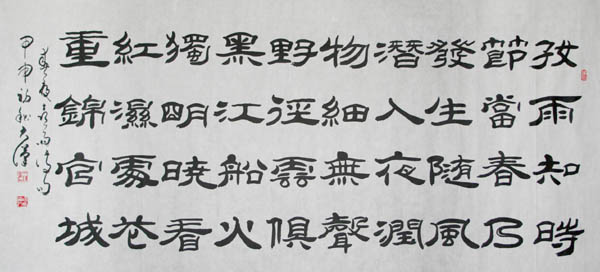 好雨知時
節當春乃
發生隨風
潛入夜潤
物細無聲
野徑雲俱
黑江船火
獨明曉看
紅濕處花
重錦官城
春夜喜雨
甲申初秋